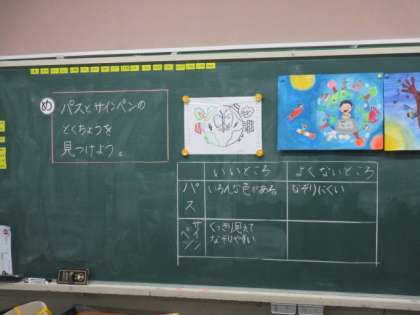 め
パスとサインペンの
とくちょうを
見つけよう。
いいところ
よくないところ
パス
いろんな色がある
なぞりにくい
サインペン
くっきり見えて
なぞりやすい